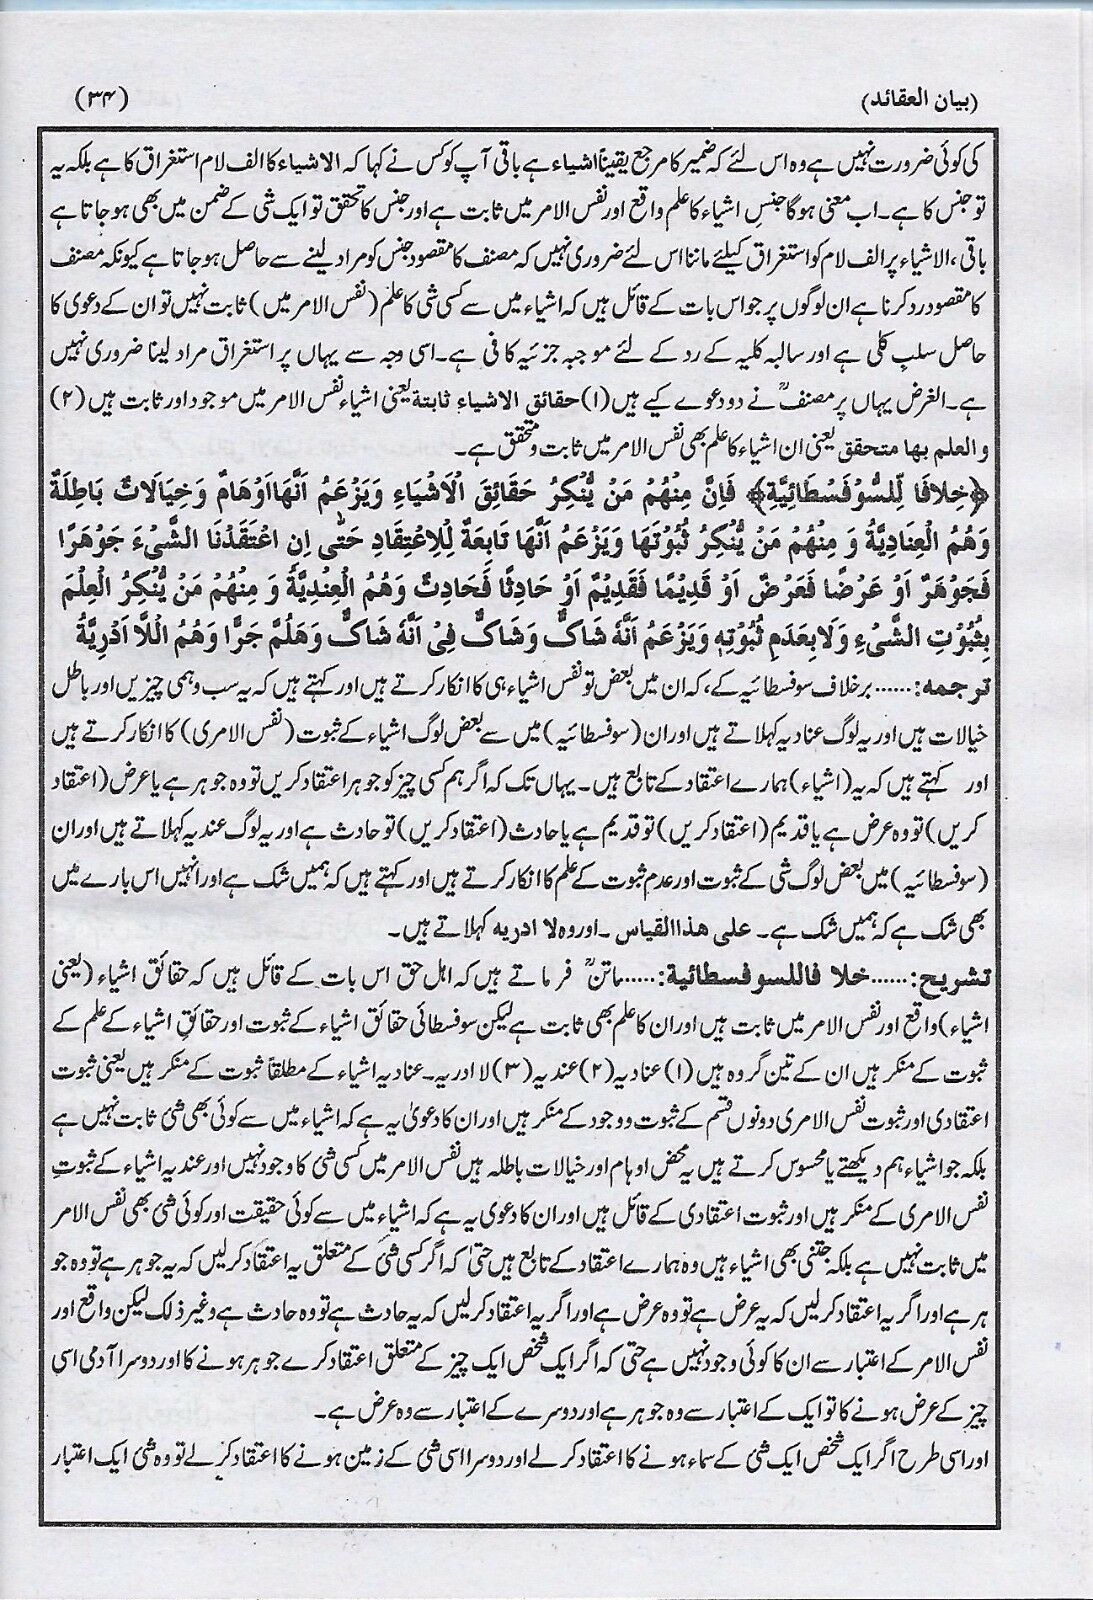 (بیان العقائد)
(۳۴)
کی کوئی ضرورت نہیں ہے وہ اس لئے کہ ضمیر کا مرجع یقیناً اشیاء ہے باقی آپ کو کس نے کہا کہ الاشیاء کا الف لام استغراق کا ہے بلکہ یہ
تو جنس کا ہے۔ اب معنی ہوگا جنسِ اشیاء کا علم واقع اور نفس الامر میں ثابت ہے اور جنس کا تحقق تو ایک شی کے ضمن میں بھی ہو جاتا ہے
باقی، الاشیاء پر الف لام کو استغراق کیلئے ماننا اس لئے ضروری نہیں کہ مصنف کا مقصود جنس کو مراد لینے سے حاصل ہو جاتا ہے کیونکہ مصنف
کا مقصود رد کرنا ہے ان لوگوں پر جو اس بات کے قائل ہیں کہ اشیاء میں سے کسی شی کا علم (نفس الامر میں) ثابت نہیں تو ان کے دعوی کا
حاصل سلب کلی ہے اور سالبہ کلیہ کے رد کے لئے موجبہ جزئیہ کافی ہے۔ اسی وجہ سے یہاں پر استغراق مراد لینا ضروری نہیں
ہے۔ الغرض یہاں پر مصنفؒ نے دو دعوے کیے ہیں (۱) حقائق الاشیاءِ ثابتة یعنی اشیاء نفس الامر میں موجود اور ثابت ہیں (۲)
والعلم بها متحقق یعنی ان اشیاء کا علم بھی نفس الامر میں ثابت و متحقق ہے۔
﴿خِلَافًا لِّلسُّوْفَسْطَائِيَّةِ﴾ فَاِنَّ مِنْهُمْ مَنْ يُّنْكِرُ حَقَائِقَ الْاَشْيَاءِ وَيَزْعَمُ اَنَّهَا اَوْهَامٌ وَخِيَالَاتٌ بَاطِلَةٌ
وَهُمُ الْعِنَادِيَّةُ وَ مِنْهُمْ مَنْ يُّنْكِرُ ثُبُوْتَهَا وَيَزْعَمُ اَنَّهَا تَابِعَةٌ لِلْاِعْتِقَادِ حَتّٰى اِنِ اعْتَقَدْنَا الشَّىْءَ جَوْهَرًا
فَجَوْهَرٌ اَوْ عَرْضًا فَعَرْضٌ اَوْ قَدِيْمًا فَقَدِيْمٌ اَوْ حَادِثًا فَحَادِثٌ وَهُمُ الْعِنْدِيَّةُ وَ مِنْهُمْ مَنْ يُّنْكِرُ الْعِلْمَ
بِثُبُوْتِ الشَّىْءِ وَلَا بِعَدَمِ ثُبُوْتِهٖ وَيَزْعَمُ اَنَّهٗ شَاكٌّ وَشَاكٌّ فِىْ اَنَّهٗ شَاكٌّ وَهَلُمَّ جَرًّا وَهُمُ اللَّا اَدْرِيَّةُ
ترجمه: ...... برخلاف سوفسطائیہ کے، کہ ان میں بعض تو نفس اشیاء ہی کا انکار کرتے ہیں اور کہتے ہیں کہ یہ سب وہمی چیزیں اور باطل
خیالات ہیں اور یہ لوگ عنادیہ کہلاتے ہیں اور ان (سوفسطائیہ) میں سے بعض لوگ اشیاء کے ثبوت (نفس الامری) کا انکار کرتے ہیں
اور کہتے ہیں کہ یہ (اشیاء) ہمارے اعتقاد کے تابع ہیں۔ یہاں تک کہ اگر ہم کسی چیز کو جوہر اعتقاد کریں تو وہ جوہر ہے یا عرض (اعتقاد
کریں) تو وہ عرض ہے یا قدیم (اعتقاد کریں) تو قدیم ہے یا حادث (اعتقاد کریں) تو حادث ہے اور یہ لوگ عندیہ کہلاتے ہیں اور ان
(سوفسطائیہ) میں بعض لوگ شی کے ثبوت اور عدم ثبوت کے علم کا انکار کرتے ہیں اور کہتے ہیں کہ ہمیں شک ہے اور انہیں اس بارے میں
بھی شک ہے کہ ہمیں شک ہے۔ علی هذا القیاس ۔ اور وہ لا ادریه کہلاتے ہیں۔
تشریح: ...... خلا فاللسوفسطائية: ...... ماتنؒ فرماتے ہیں کہ اہل حق اس بات کے قائل ہیں کہ حقائق اشیاء (یعنی
اشیاء) واقع اور نفس الامر میں ثابت ہیں اور ان کا علم بھی ثابت ہے لیکن سوفسطائی حقائق اشیاء کے ثبوت اور حقائقِ اشیاء کے علم کے
ثبوت کے منکر ہیں ان کے تین گروہ ہیں (۱) عنادیہ (۲) عندیہ (۳) لا ادریہ۔ عنادیہ اشیاء کے مطلقاً ثبوت کے منکر ہیں یعنی ثبوت
اعتقادی اور ثبوت نفس الامری دونوں قسم کے ثبوت و وجود کے منکر ہیں اور ان کا دعویٰ یہ ہے کہ اشیاء میں سے کوئی بھی شئ ثابت نہیں ہے
بلکہ جو اشیاء ہم دیکھتے یا محسوس کرتے ہیں یہ محض اوہام اور خیالات باطلہ ہیں نفس الامر میں کسی شئ کا وجود نہیں اور عندیہ اشیاء کے ثبوتِ
نفس الامری کے منکر ہیں اور ثبوت اعتقادی کے قائل ہیں اور ان کا دعوی یہ ہے کہ اشیاء میں سے کوئی حقیقت اور کوئی شئ بھی نفس الامر
میں ثابت نہیں ہے بلکہ جتنی بھی اشیاء ہیں وہ ہمارے اعتقاد کے تابع ہیں حتیٰ کہ اگر کسی شئ کے متعلق یہ اعتقاد کرلیں کہ یہ جوہر ہے تو وہ جو
ہر ہے اور اگر یہ اعتقاد کرلیں کہ یہ عرض ہے تو وہ عرض ہے اور اگر یہ اعتقاد کرلیں کہ یہ حادث ہے تو وہ حادث ہے وغیر ذلک لیکن واقع اور
نفس الامر کے اعتبار سے ان کا کوئی وجود نہیں ہے حتی کہ اگر ایک شخص ایک چیز کے متعلق اعتقاد کرے جوہر ہونے کا اور دوسرا آدمی اسی
چیز کے عرض ہونے کا تو ایک کے اعتبار سے وہ جوہر ہے اور دوسرے کے اعتبار سے وہ عرض ہے۔
اور اسی طرح اگر ایک شخص ایک شئ کے سماء ہونے کا اعتقاد کرلے اور دوسرا اسی شئ کے زمین ہونے کا اعتقاد کرلے تو وہ شئ ایک اعتبار